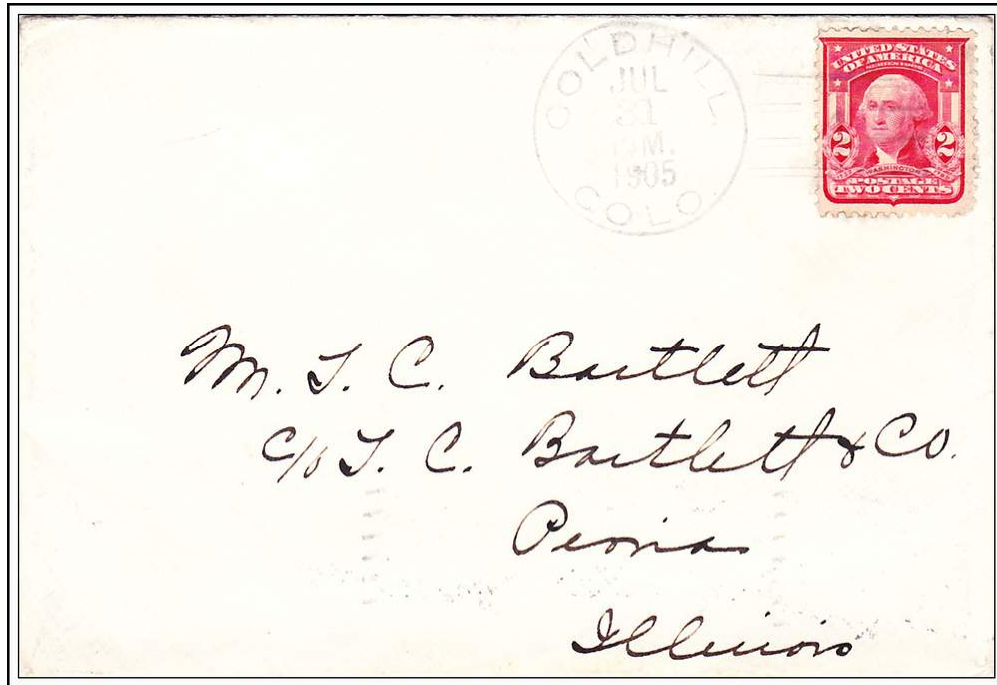 GOLDHILL.
JUL
31
M.
1905
COLO.
UNITED STATES
OF AMERICA
2 2
WASHINGTON
POSTAGE
TWO CENTS
M. T. C. Bartlett
c/o T. C. Bartlett & Co.
Peoria
Illinois